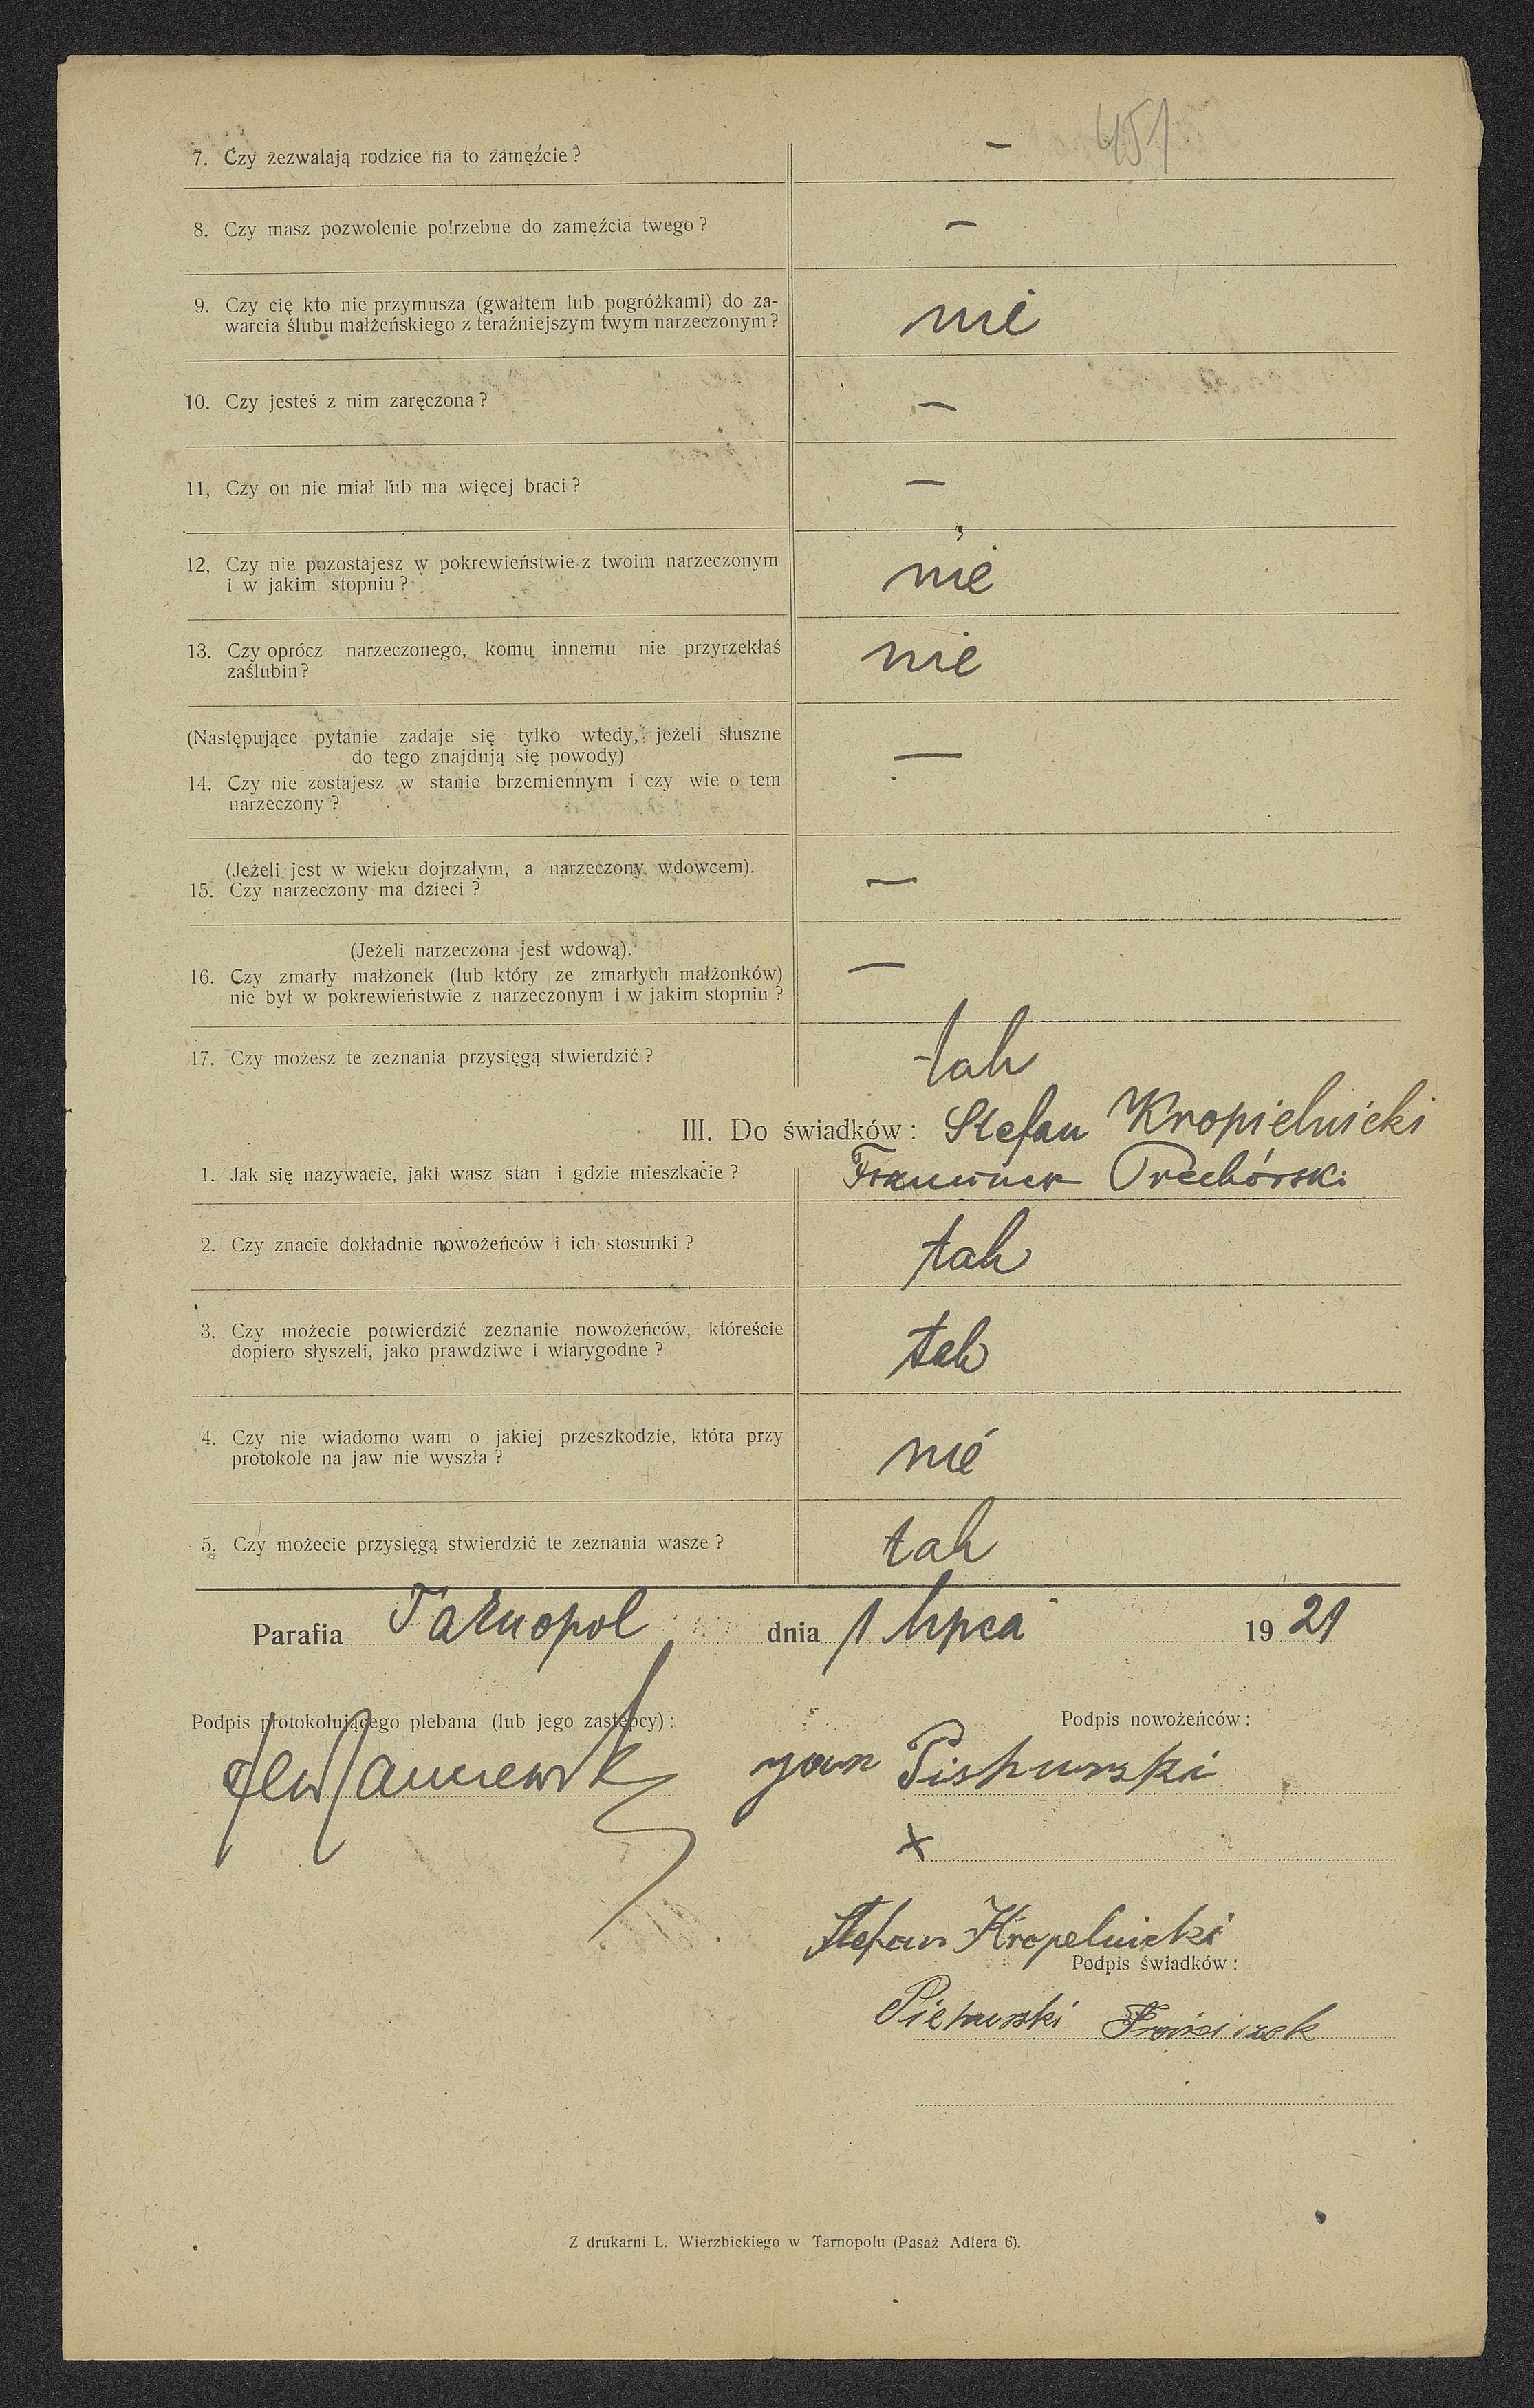 451
7. Czy zezwalają rodzice na to zamęźcie? —
8. Czy masz pozwolenie potrzebne do zamęźcia twego? —
9. Czy cię kto nie przymusza (gwałtem lub pogróżkami) do za-
warcia ślubu małżeńskiego z teraźniejszym twym narzeczonym? nie
10. Czy jesteś z nim zaręczona? —
11, Czy on nie miał lub ma więcej braci? —
12, Czy nie pozostajesz w pokrewieństwie z twoim narzeczonym
i w jakim stopniu? nie
13. Czy oprócz narzeczonego, komu innemu nie przyrzekłaś
zaślubin? nie
(Następujące pytanie zadaje się tylko wtedy, jeżeli słuszne
do tego znajdują się powody) —
14. Czy nie zostajesz w stanie brzemiennym i czy wie o tem
narzeczony?
(Jeżeli jest w wieku dojrzałym, a narzeczony wdowcem).
15. Czy narzeczony ma dzieci? —
(Jeżeli narzeczona jest wdową).
16. Czy zmarły małżonek (lub który ze zmarłych małżonków) —
nie był w pokrewieństwie z narzeczonym i w jakim stopniu?
17. Czy możesz te zeznania przysięgą stwierdzić? tak
III. Do świadków: Stefan Kropielnicki
1. Jak się nazywacie, jaki wasz stan i gdzie mieszkacie?
2. Czy znacie dokładnie nowożeńców i ich stosunki? tak
3. Czy możecie potwierdzić zeznanie nowożeńców, któreście
dopiero słyszeli, jako prawdziwe i wiarygodne? tak
4. Czy nie wiadomo wam o jakiej przeszkodzie, która przy
protokole na jaw nie wyszła? nie
5. Czy możecie przysięgą stwierdzić te zeznania wasze? tak
Parafia Tarnopol dnia 1 lipca 1921
Podpis protokołującego plebana (lub jego zastępcy): Podpis nowożeńców:
x
Stefan Kropelnicki
Podpis świadków:
Z drukarni L. Wierzbickiego w Tarnopolu (Pasaż Adlera 6).